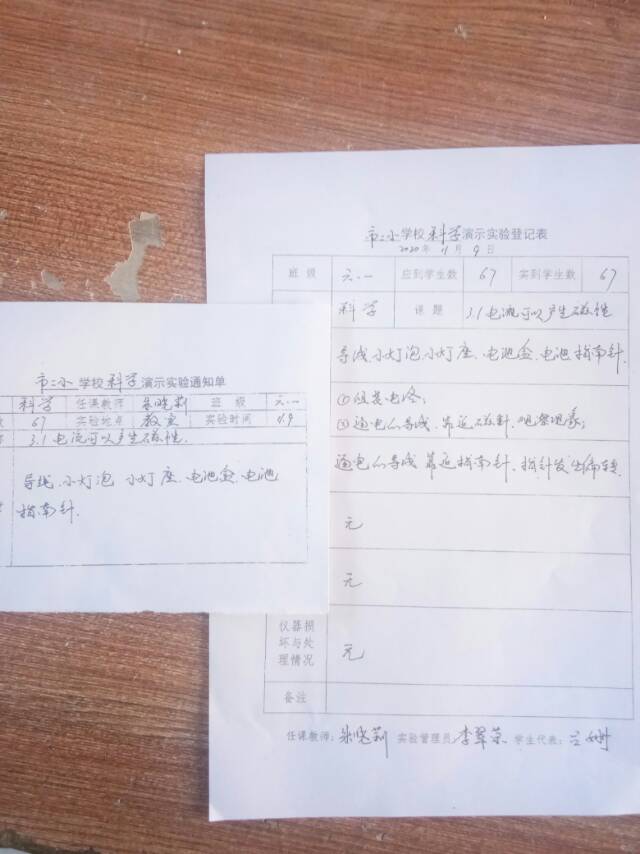 市二小学校科学演示实验登记表
2020年11月9日
班级 六.一 应到学生数 67 实到学生数 67
科学 课题 3.1电流可以产生磁性
导线.小灯泡.小灯座、电池盒、电池指南针.
①组装电路;
②通电的导线、靠近磁针,观察现象;
通电的导线靠近指南针、指针发生偏转
无
无
仪器损
坏与处
理情况
无
备注
任课教师:朱晓莉 实验管理员 李翠 学生代表:
市二小学校科学演示实验通知单
科学 任课教师 朱晓莉 班级 六.一
67 实验地点 教室 实验时间 11.9
3.1电流可以产生磁性.
导线、小灯泡 小灯座、电池盒、电池
指南针.